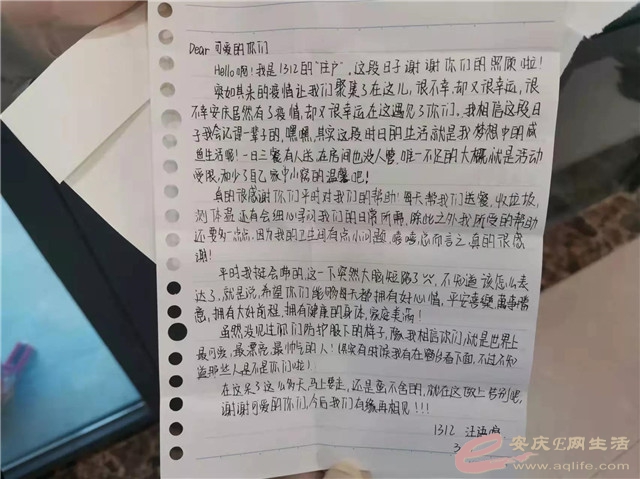 Dear 可爱的你们
Hello啊!我是1312的“住户”,这段日子谢谢你们的照顾啦!
突如其来的疫情让我们聚集了在这儿,很不幸却又很幸运,很
不幸安庆居然有了疫情,却又很幸运在这遇见了你们。我相信这段日
子我会记得一辈子的,嘿嘿,其实这段时日的生活就是我梦想中的咸
鱼生活啊!一日三餐有人送,在房间也没人管,唯一不足的大概就是活动
受限,而少了自己家中小窝的温馨吧!
真的很感谢你们平时对我们的帮助!每天帮我们送餐,收垃圾,
测体温还有会细心寻问我们的日常所需,除此之外我所受的帮助
还要多一点点,因为我的卫生间有点小问题,嘻嘻总而言之真的很感
谢!
平时我挺会唠的,这一下突然大脑短路了,不知道该怎么表
达了,就是说,希望你们能够每天都拥有好心情,平安喜樂,萬事
意,拥有大好前程,拥有健康的身体,家庭美满!
虽然没见过你们防护服下的样子,但我相信你们就是世界上
最可爱,最漂亮,最帅气的人!(其实有时候我有在窗台看下面,不过不知
道那些人是不是你们啦)
在这呆了这么多天,马上要走,还是蛮不舍的,就在这做上告别吧,
谢谢可爱的你们,今后我们有缘再相见!!!
1312 汪
3
安庆E网生活
www.aqlife.com